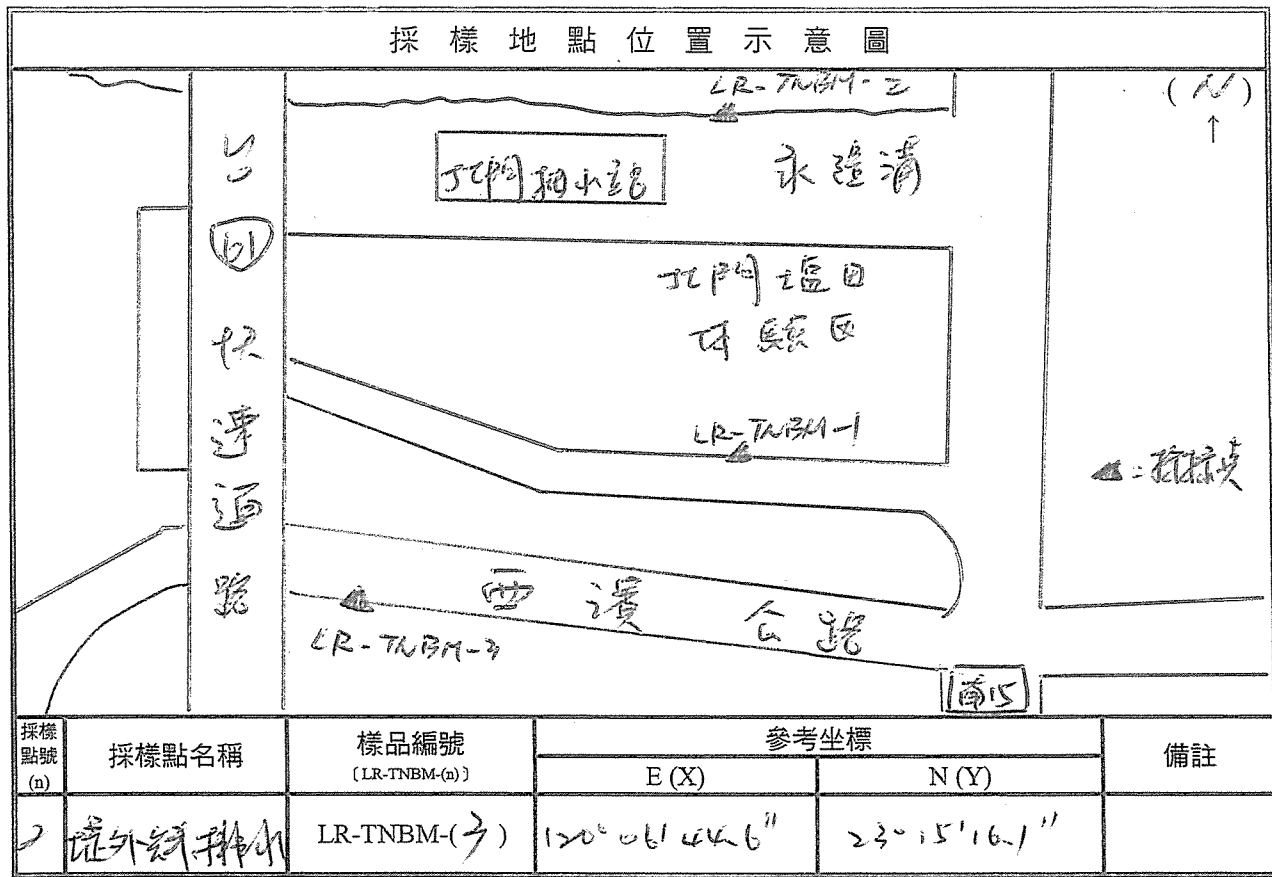 採樣地點位置示意圖
LR-TNBM-2
(N)
↑
台61快速道路
北門抽水站
永隆溝
北門塩田
体驗区
LR-TNBM-1
:採樣点
西濱公路
LR-TNBM-3
南15
採樣點號(n) 採樣點名稱 樣品編號〔LR-TNBM-(n)〕 參考坐標 E (X) N (Y) 備註
LR-TNBM-(3) 120° 06' 44.6" 23° 15' 16.1"